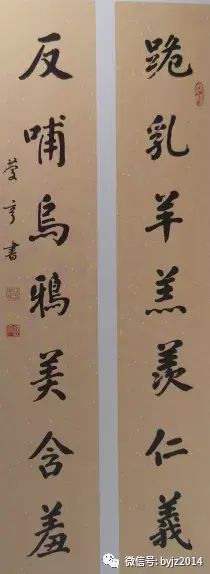 跪乳羊羔羨仁義
反哺烏鴉美含羞
書
微信号: byjz2014